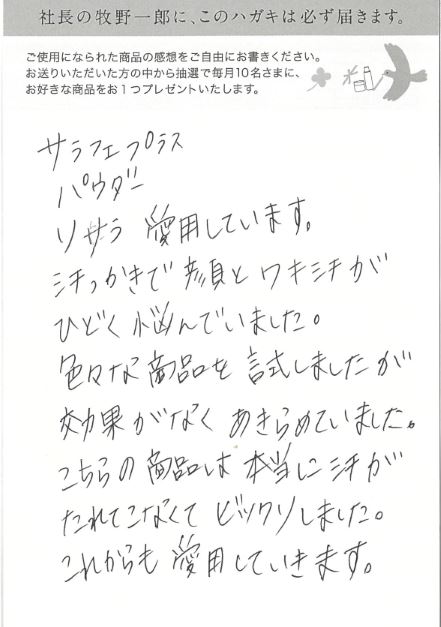 社長の牧野一郎に、このハガキは必ず届きます。
ご使用になられた商品の感想をご自由にお書きください。
お送りいただいた方の中から抽選で毎月10名さまに、
お好きな商品をお1つプレゼントいたします。
サラフェプラス
パウダー
ソサラ 愛用しています。
汗っかきで顔とワキ汗が
ひどく悩んでいました。
色々な商品を試しましたが
効果がなくあきらめていました。
こちらの商品は本当に汗が
たれてこなくてビックリしました。
これからも愛用していきます。